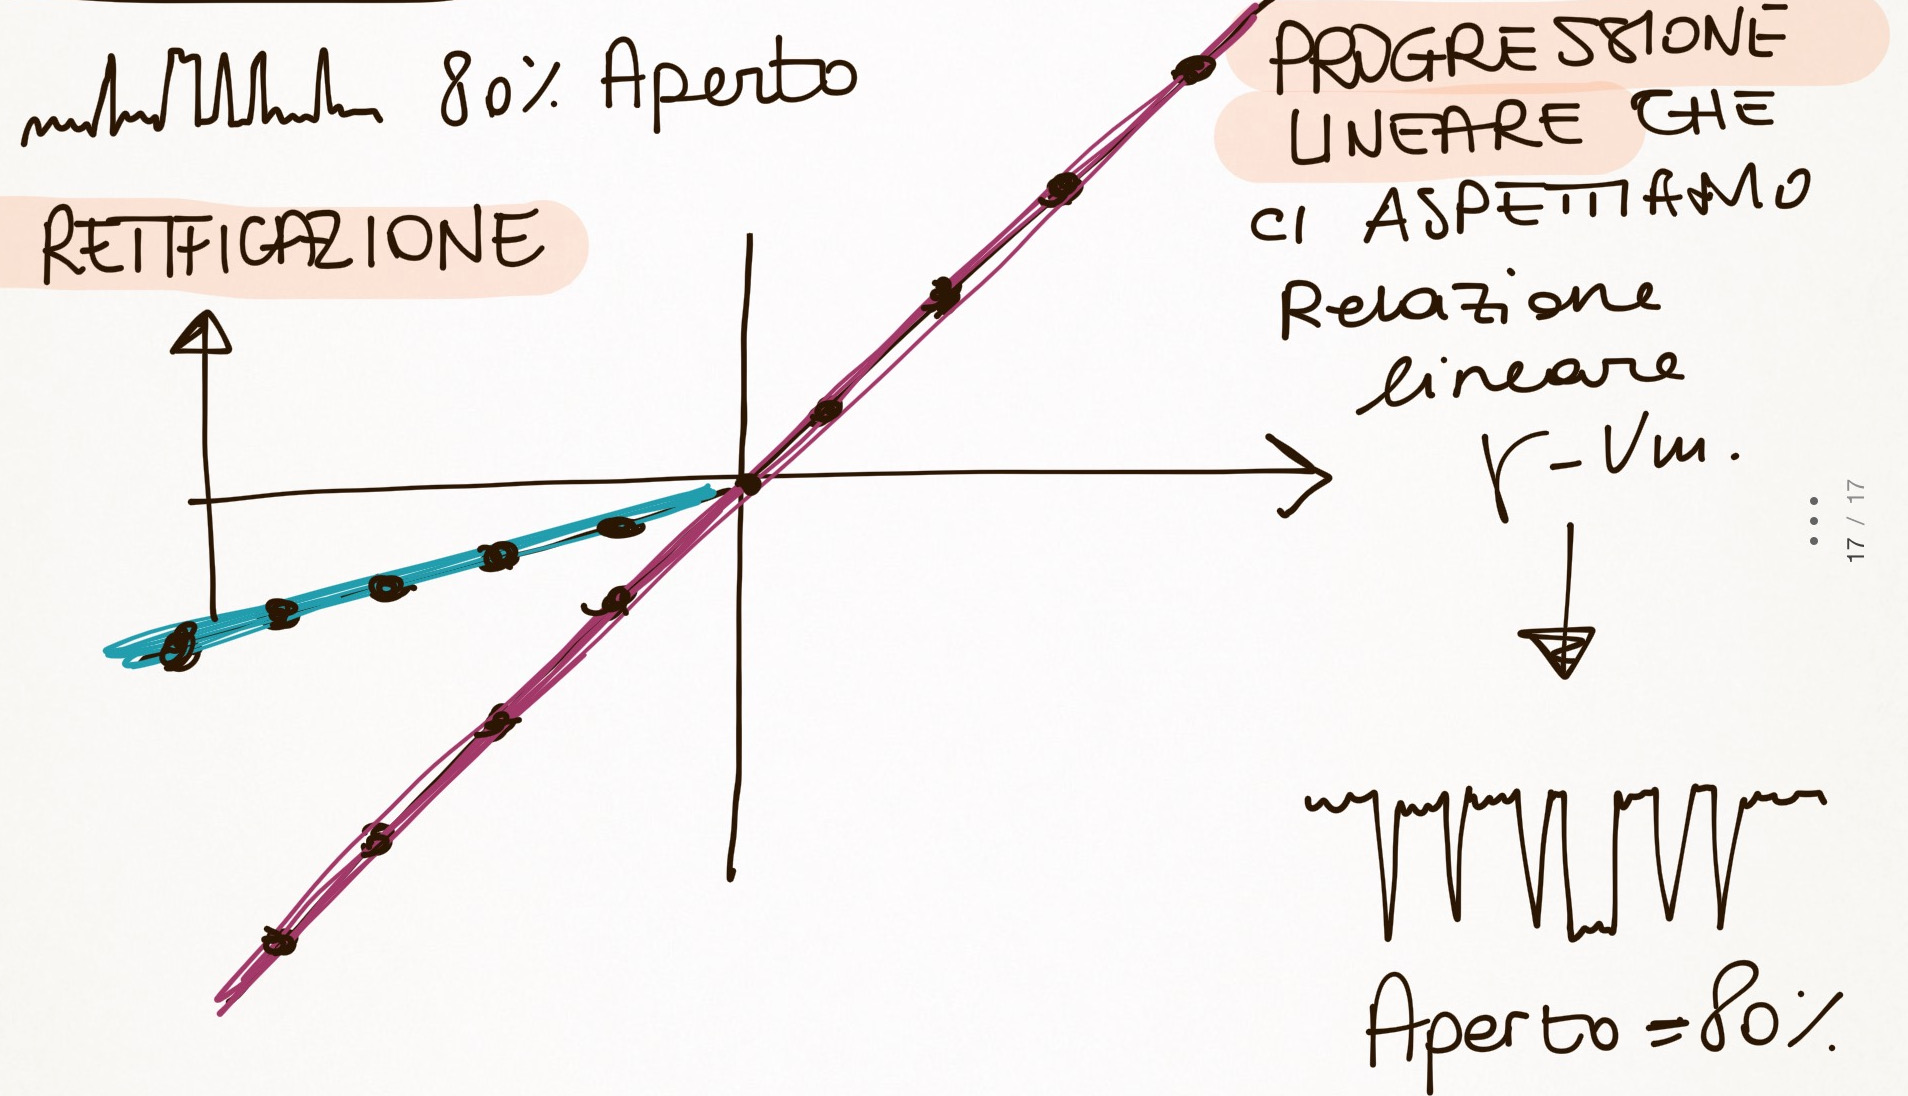 80% Aperto
RETTIFICAZIONE
PROGRESSIONE
LINEARE CHE
CI ASPETTIAMO
Relazione
lineare
γ-Vm.
17 / 17
Aperto = 80%